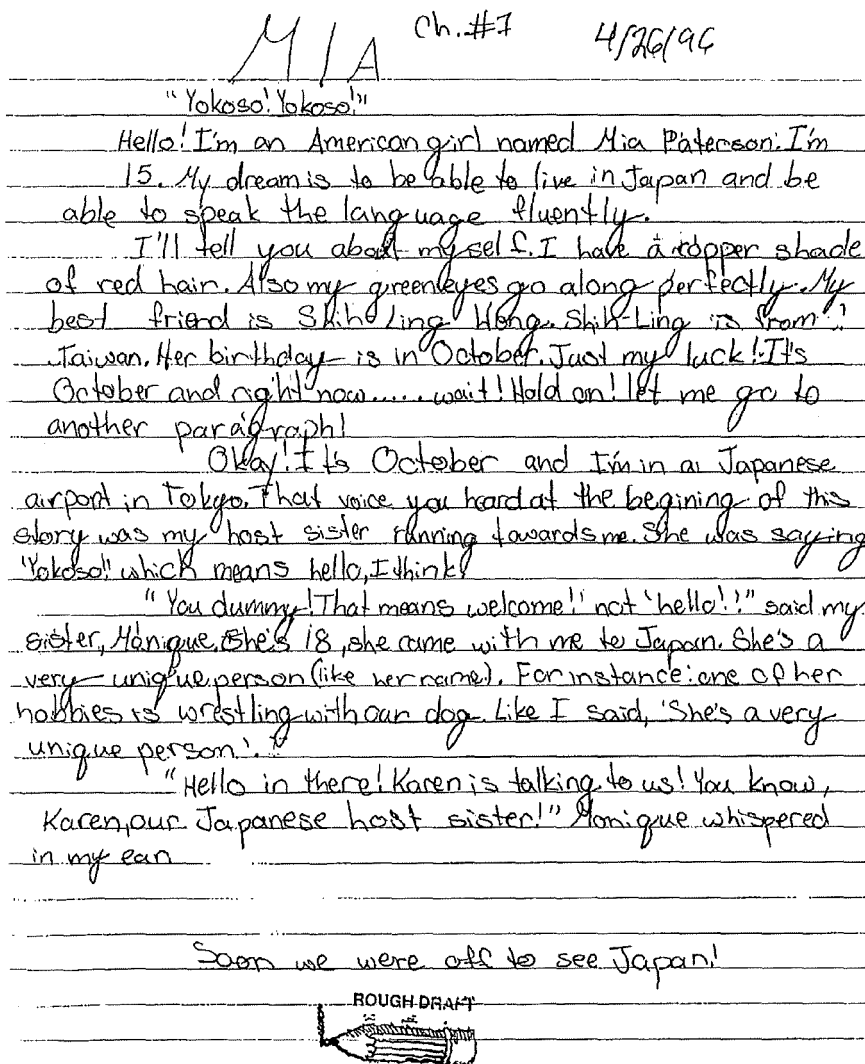 MIA Ch.#1 4/26/96
"Yokoso! Yokoso!"
Hello! I'm an American girl named Mia Paterson. I'm
15. My dream is to be able to live in Japan and be
able to speak the language fluently.
I'll tell you about myself. I have a copper shade
of red hair. Also my green eyes go along perfectly. My
best friend is Shih-Ling Wong. Shih-Ling is from
Taiwan. Her birthday is in October. Just my luck! It's
October and right now..... wait! Hold on! let me go to
another paragraph!
Okay! It's October and I'm in a Japanese
airport in Tokyo. That voice you heard at the begining of this
story was my host sister running towards me. She was saying
'Yokoso!' which means hello, I think!
"You dummy! That means 'welcome!' not 'hello!'" said my
sister, Monique. She's 18, she came with me to Japan. She's a
very unique person (like her name). For instance: one of her
hobbies is wrestling with our dog. Like I said, 'She's a very
unique person.'
"Hello in there! Karen is talking to us! You know,
Karen, our Japanese host sister!" Monique whispered
in my ear.
Soon we were off to see Japan!
ROUGH DRAFT